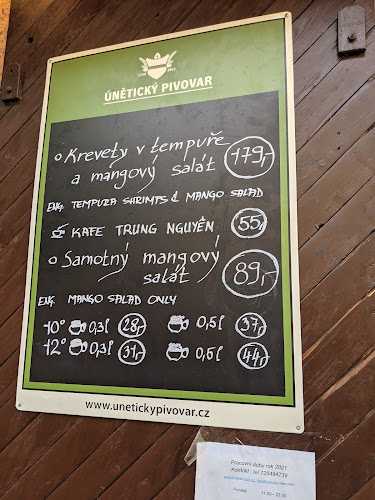 ÚNĚTICKÝ PIVOVAR
Krevety v tempuře
a mangový salát 179,-
ENG. TEMPURA SHRIMTS & MANGO SALAD
KAFE TRUNG NGUYÊN 55,-
Samotný mangový
salát 89,-
ENG. MANGO SALAD ONLY
10° 0,3l 28,- 0,5l 37,-
12° 0,3l 31,- 0,5l 44,-
www.unetickypivovar.cz
Pracovní doby rok 2021
Pondělí